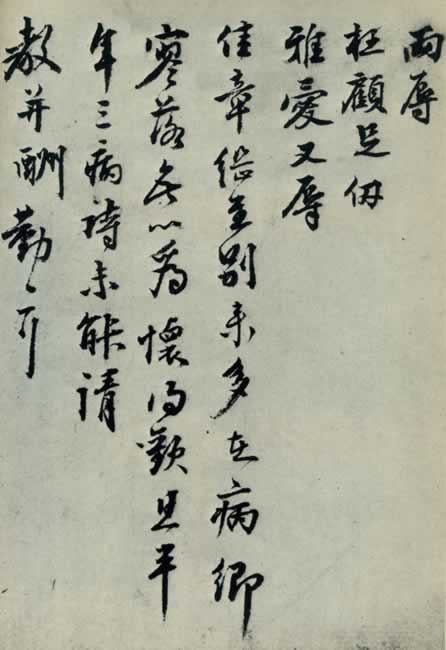 兩辱
枉顧足仞
雅愛又辱
佳章繼至別來多在病鄉
寥落無以爲懷且半
年三病詩未能請
教并酬勤〻耳